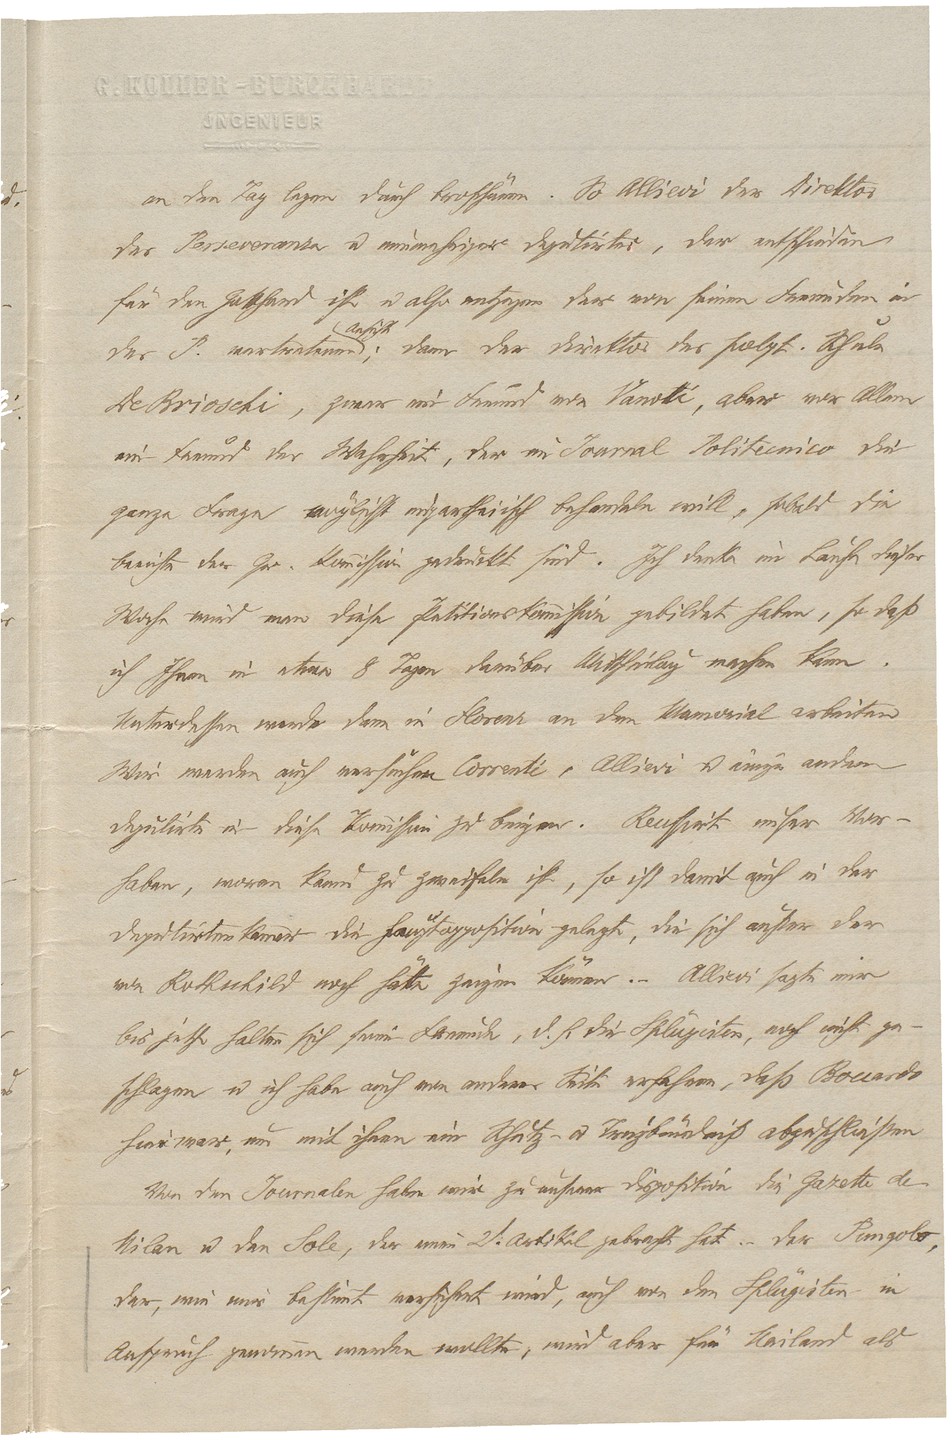 G. KOLLER-BURCKHARDT
INGENIEUR
an den Tag legen durch Broschüren. So Allievi der Direktor
der Perseveranza u einungeheurer deputirter, der entschieden
für den Gotthard ist u also entgegen der von seinen Freunden in
der P. vertretenen Ansicht; dann der Direktor der polyt. Schule
De Brioschi, zwar ein Freund von Vanotti, aber vor Allem
ein Freund der Wahrheit, der im Journal Politecnico die
ganze Frage möglichst unpartheiisch behandeln will, sobald die
berichte der Commission gedruckt sind. Ich denke im Laufe dieser
Woche wird man diese Petitionskommission gebildet haben, so daß
ich Ihnen in etwa 8 Tagen darüber Mittheilung machen kann.
Unterdessen werde dann in Florenz an dem Memorial arbeiten
Wir werden auch versuchen Correnti, Allievi u einige andere
deputirte in diese Commission zu bringen. Reussirt unser Vor-
haben, woran kaum zu zweifeln ist, so ist damit auch in der
deputirtenkammer die Hauptopposition gelegt, die sich außer der
von Rothschild noch hätte zeigen können. – Allievi sagte mir
bis jetzt halten sich seine Freunde, d. h. die Splügisten, noch nicht ge-
schlagen u ich habe auch von anderer Seite erfahren, daß Boccardo
hier war, um mit ihnen ein Schutz- u Trutzbündniß abzuschließen
Von den Journalen haben wir zu unserer disposition die Gazette de
Milan u den Sole, der einen 2t. Artikel gebracht hat. – der Pungolo,
der, wie mir bestimt versichert wird, auch von den Splügisten in
Anspruch genommen werden wollte, wird aber für Mailand als